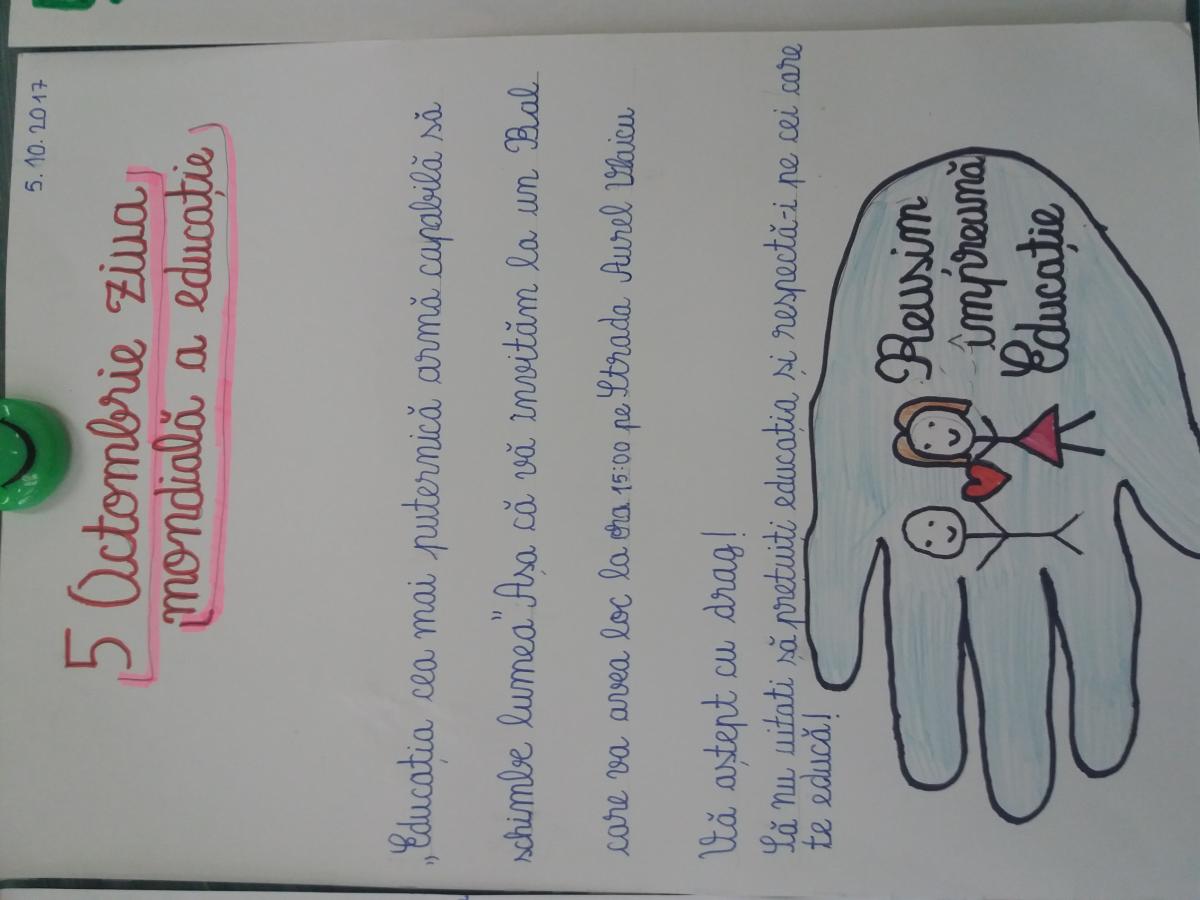 5.10.2017
5 Octombrie ziua
mondială a educație
„Educația cea mai puternică armă capabilă să
schimbe lumea" Așa că vă invităm la un Bal
care va avea loc la ora 15:00 pe Strada Aurel Vlaicu
Vă aștept cu drag!
Să nu uitati să pretuiti educația și respectă-i pe cei care
te educă!
Reusim
împreună
Educație